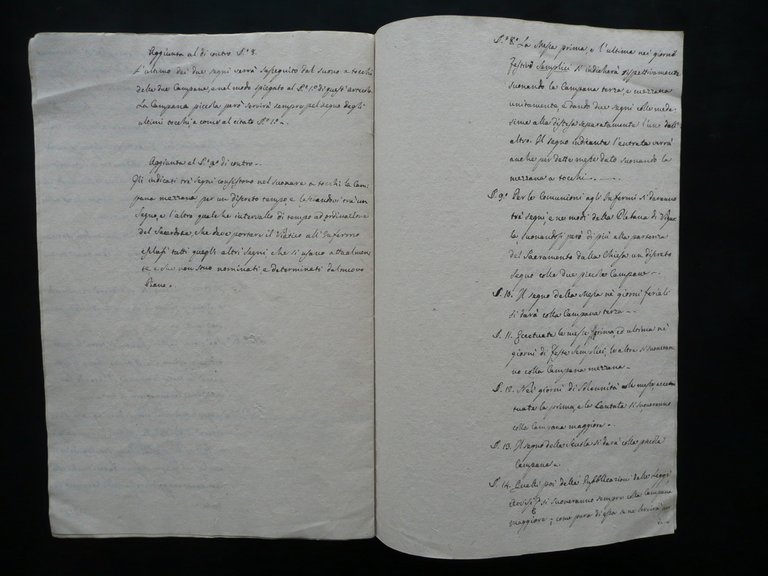 Aggiunta al di contro §.º 8.
L'ultimo dei due segni verrà susseguito dal suono a tocchi
delle due Campane, e nel modo spiegato al §.º 1.º di questi articoli.
La Campana piccola però servirà sempre pel segno degli
ultimi tocchi, e come al citato §.º 1.º
Aggiunta al §.º 9.º di contro.
Gli indicati trè segni consistono nel suonare a tocchi la Cam-
pana mezzana per un discreto tempo e lasciandovi trà un
Segno, e l'altro qualche intervallo di tempo ad
del Sacerdote, che deve portare il Viatico all'Infermo
tutti quegli altri segni, che si usano attualmen-
te, e che non sono nominati e determinati dal nuovo
Piano.
§.º 8.º La Messa prima e l'ultima nei giorni
festivi semplici si indicherà rispettivamente
suonando la Campana terza, e mezzana
unitamente, e dando due segni colle mede-
sime alla distesa separatamente l'uno dall'
altro. Il segno indicante l'entrata verrà
anche per dette messe dato suonando la
mezzana a tocchi.
§. 9.º Per le Comunioni agli Infermi si daranno
trè segni, e nei modi della Plebana di
suonandosi però di più alla partenza
del Sacramento dalla Chiesa un discreto
segno colle due piccole Campane
§. 10. Il segno della Messa nè giorni feriali
si darà colla Campana terza
§. 11. Eccettuate le messe prima, ed ultima nei
giorni di feste semplici, le altre si suoneran-
no colla Campana mezzana
§. 12. Nei giorni di Solennità le messe, eccet-
tuate la prima, e la Cantata si suoneranno
colla Campana maggiore.
§. 13. Il segno della Scuola si darà colla piccola
Campana.
§. 14. Quelli poi delle Pubblicazioni delle Leggi
si suoneranno sempre colla Campana
maggiore; come pure di essa se ne servirà